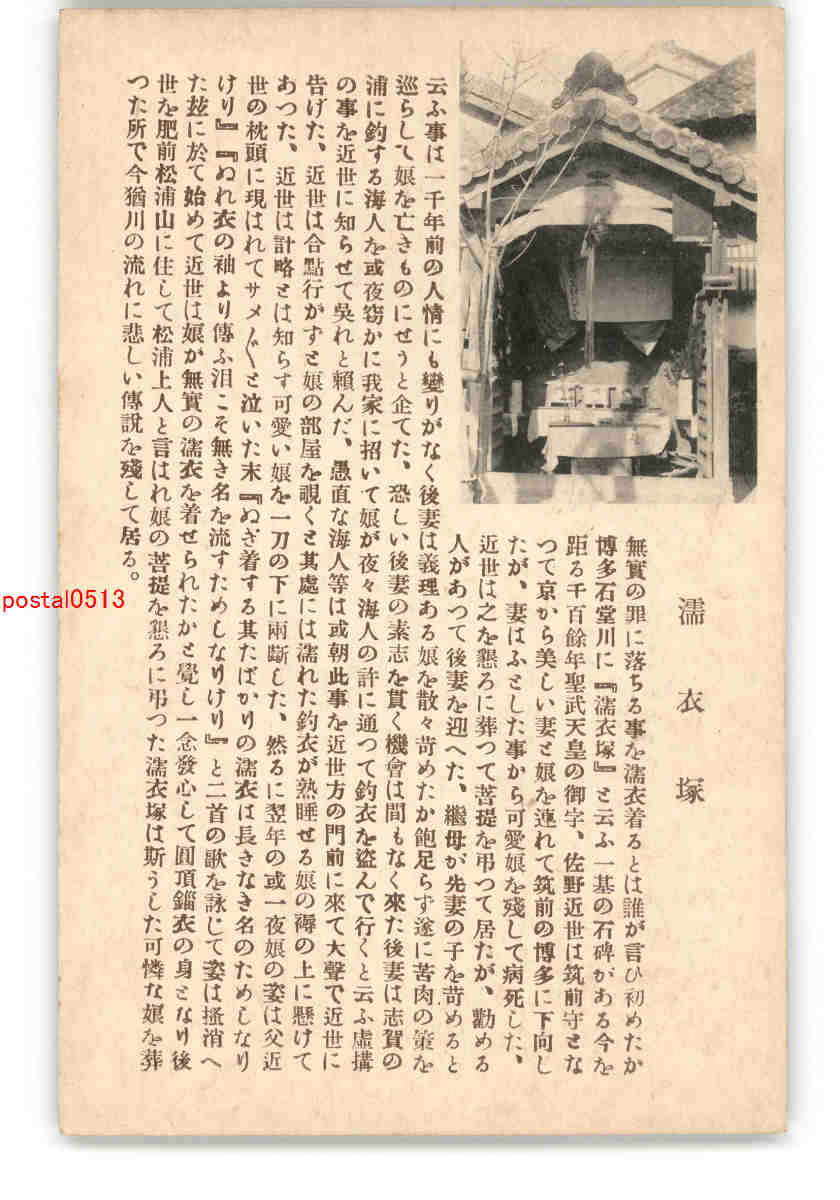 濡衣塚
無實の罪に落ちる事を濡衣着るとは誰が言ひ初めたか
博多石堂川に『濡衣塚』と云ふ一基の石碑がある今を
距る千百餘年聖武天皇の御宇、佐野近世は筑前守とな
つて京から美しい妻と娘を連れて筑前の博多に下向し
たが、妻はふとした事から可愛娘を殘して病死した、
近世は之を懇ろに葬つて菩提を弔つて居たが、勸める
人があつて後妻を迎へた、繼母が先妻の子を苛めると
云ふ事は一千年前の人情にも變りがなく後妻は義理ある娘を散々苛めたか飽足らず遂に苦肉の策を
巡らして娘を亡きものにせうと企てた、恐しい後妻の素志を貫く機會は間もなく來た後妻は志賀の
浦に釣する海人を或夜窃かに我家に招いて娘が夜々海人の許に通つて釣衣を盜んで行くと云ふ虛搆
の事を近世に知らせて呉れと賴んだ、愚直な海人等は或朝此事を近世方の門前に來て大聲で近世に
告げた、近世は合點行かずと娘の部屋を覗くと其處には濡れた釣衣が熟睡せる娘の褥の上に懸けて
あつた、近世は計略とは知らす可愛い娘を一刀の下に兩斷した、然るに翌年の或一夜娘の姿は父近
世の枕頭に現はれてサメ〲と泣いた末『ぬぎ着する其たばかりの濡衣は長きなき名のためしなり
けり』『ぬれ衣の袖より傳ふ泪こそ無き名を流すためしなりけり』と二首の歌を詠じて姿は搔消へ
た玆に於て始めて近世は娘が無實の濡衣を着せられたかと覺し一念發心して圓頂緇衣の身となり後
世を肥前松浦山に住して松浦上人と言はれ娘の菩提を懇ろに弔つた濡衣塚は斯うした可憐な娘を葬
つた所で今猶川の流れに悲しい傳說を殘して居る。
postal0513